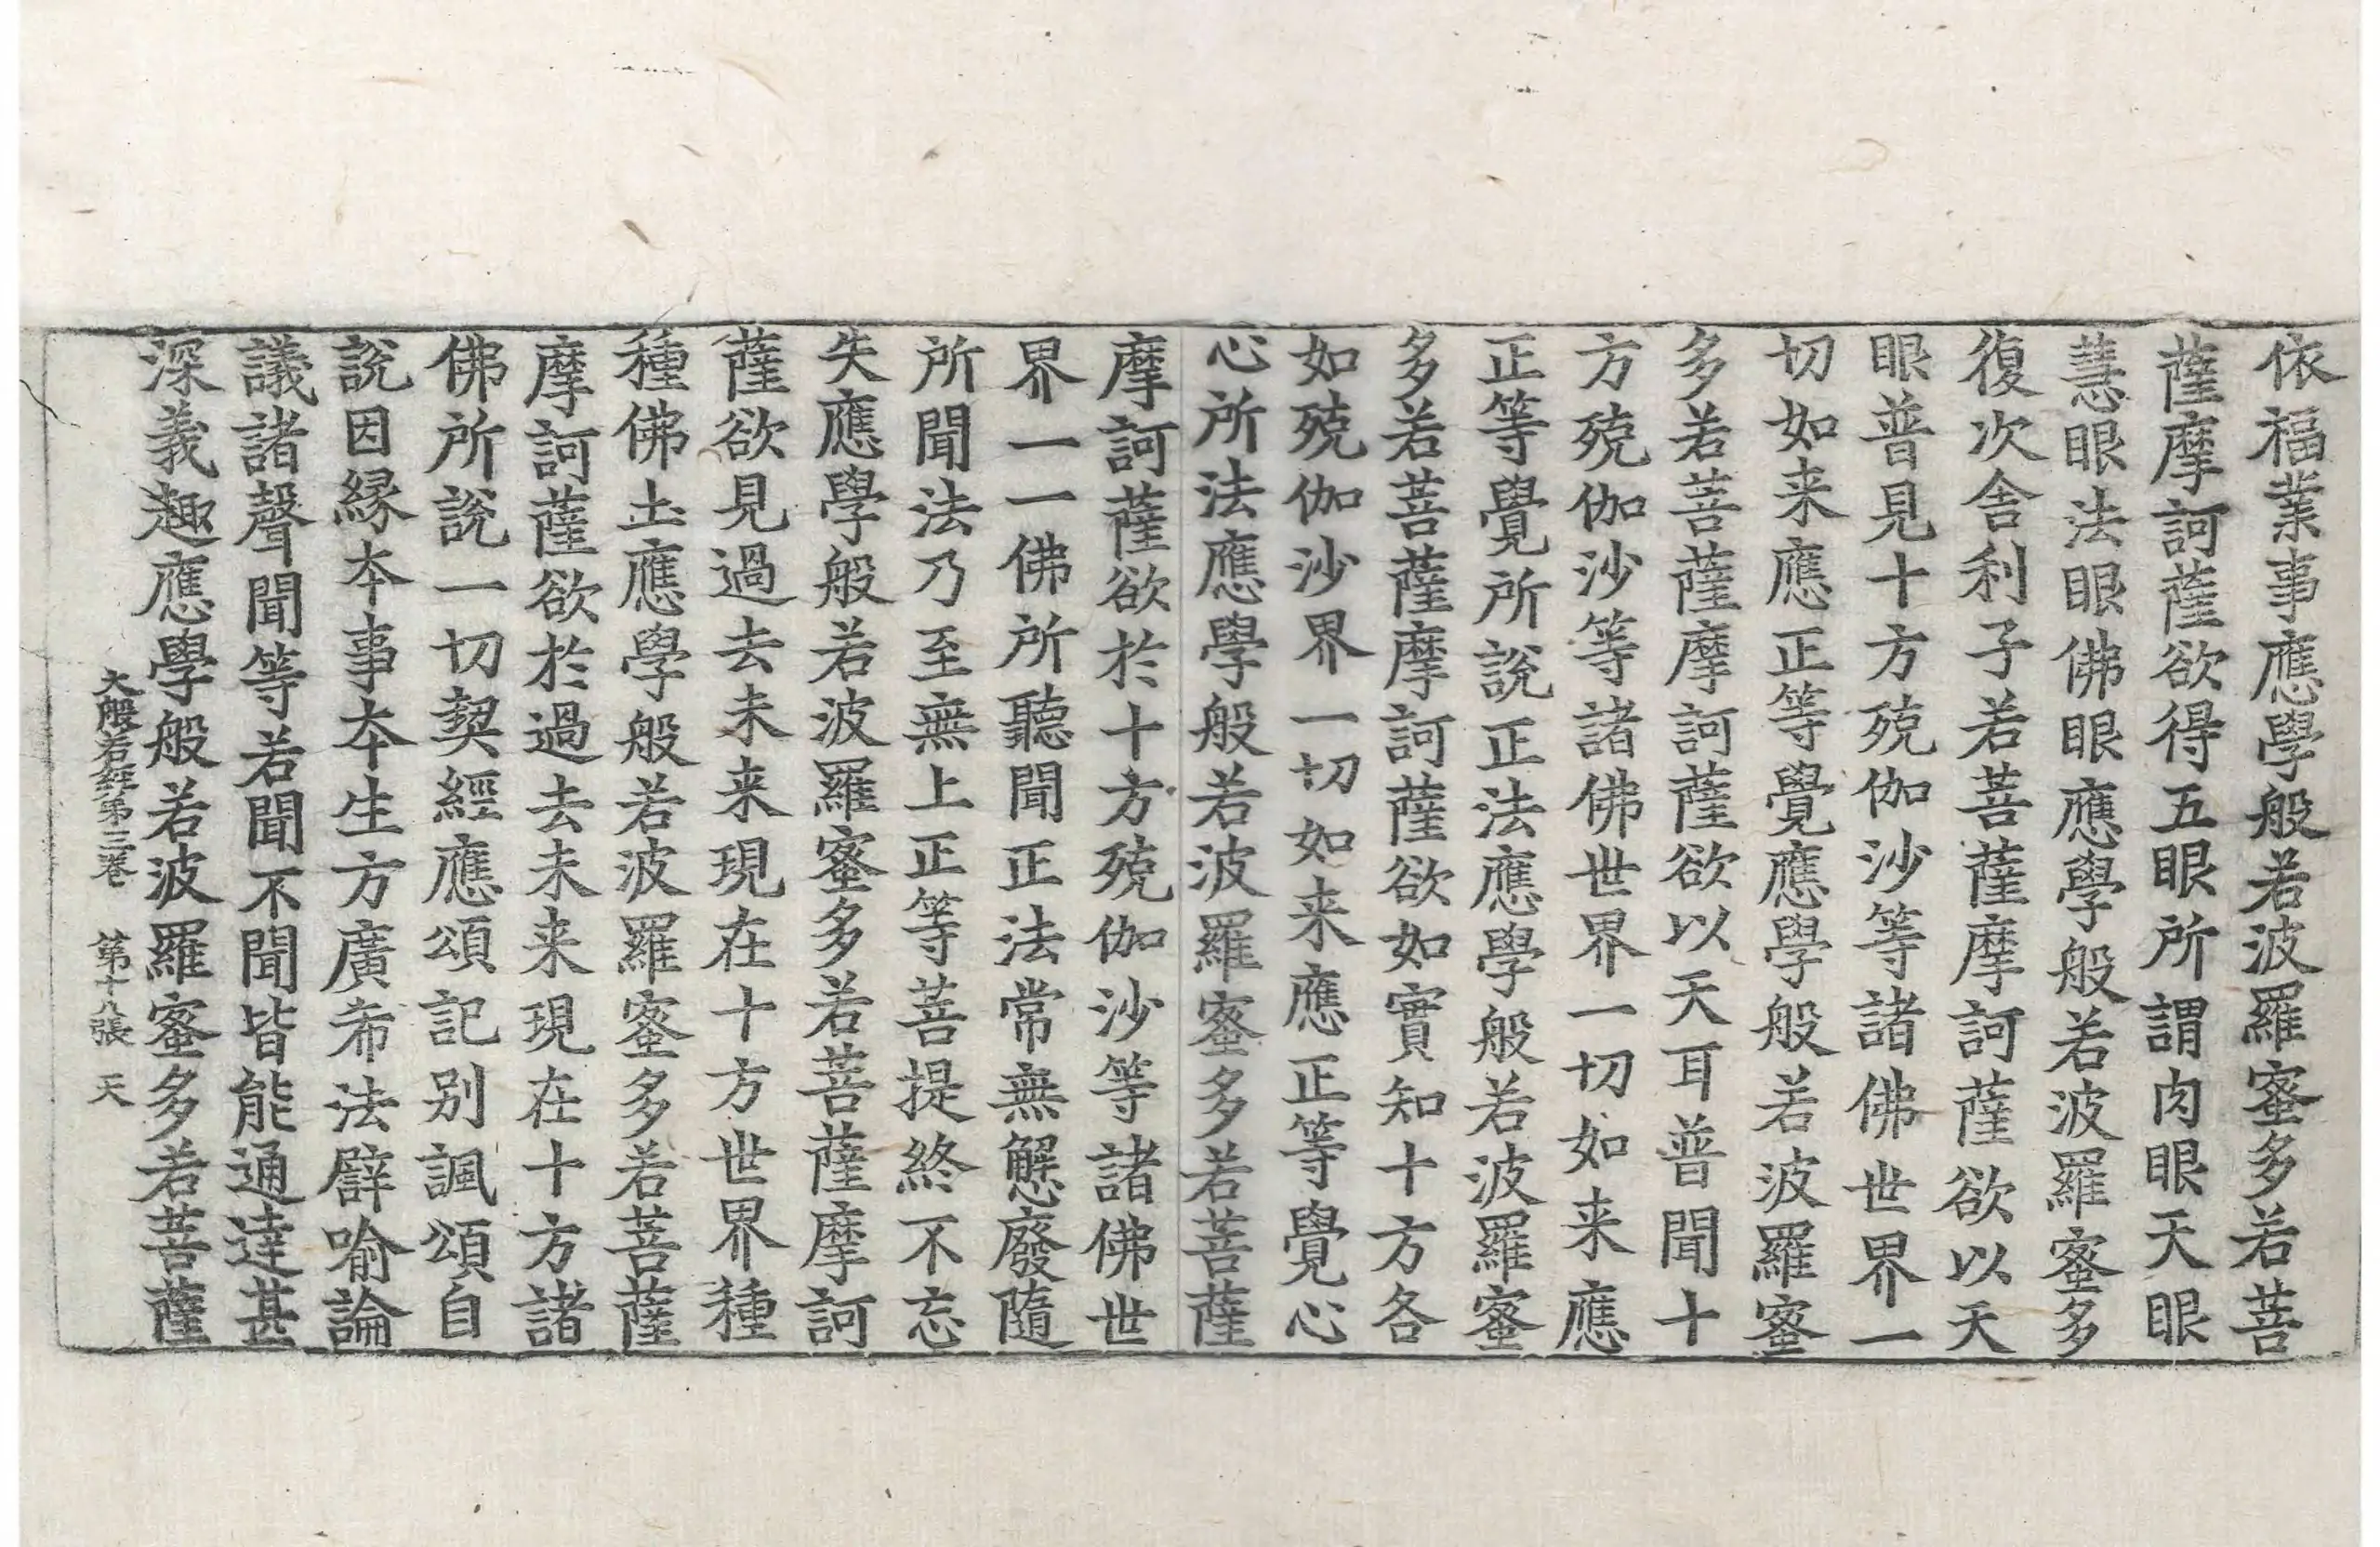 依福業事應學般若波羅蜜多若菩
薩摩訶薩欲得五眼所謂肉眼天眼
慧眼法眼佛眼應學般若波羅蜜多
復次舍利子若菩薩摩訶薩欲以天
眼普見十方殑伽沙等諸佛世界一
切如来應正等覺應學般若波羅蜜
多若菩薩摩訶薩欲以天耳普聞十
方殑伽沙等諸佛世界一切如来應
正等覺所說正法應學般若波羅蜜
多若菩薩摩訶薩欲如實知十方各
如殑伽沙界一切如来應正等覺心
心所法應學般若波羅蜜多若菩薩
摩訶薩欲於十方殑伽沙等諸佛世
界一一佛所聽聞正法常無懈廢隨
所聞法乃至無上正等菩提終不忘
失應學般若波羅蜜多若菩薩摩訶
薩欲見過去未来現在十方世界種
種佛土應學般若波羅蜜多若菩薩
摩訶薩欲於過去未来現在十方諸
佛所說一切契經應頌記别諷頌自
說因縁本事本生方廣希法譬喻論
議諸聲聞等若聞不聞皆能通達甚
深義趣應學般若波羅蜜多若菩薩
大般若經第三卷　第十八張　天